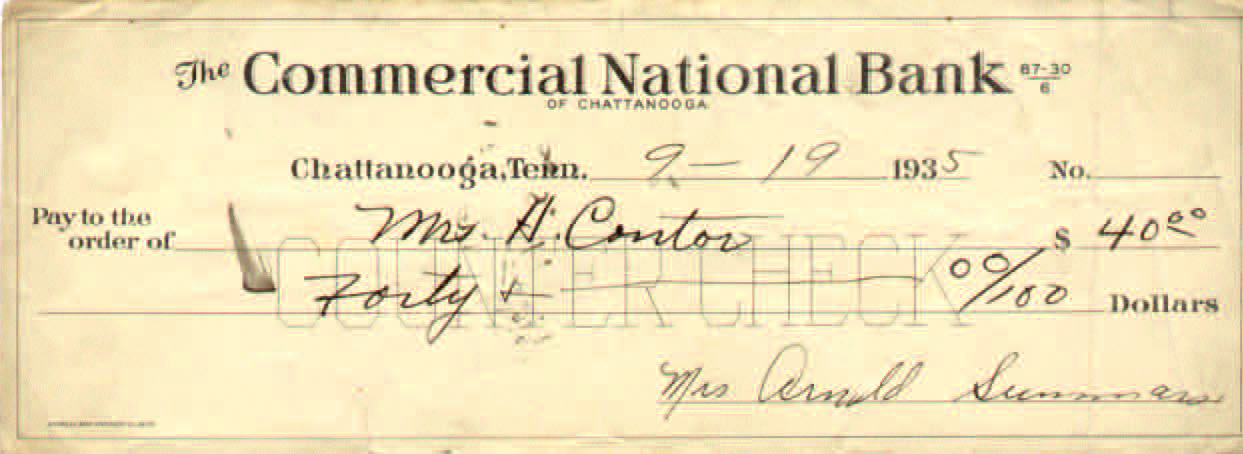 The Commercial National Bank 87-30
6
OF CHATTANOOGA
Chattanooga, Tenn. 9 — 19 1935 No.
Pay to the
order of Mrs. H. Contor $ 40 00
COUNTER CHECK
Forty & 00/100 Dollars
Mrs Arnold Summars